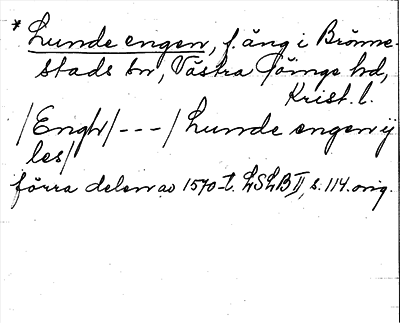 * Lunde engen, f. äng i Brönne-
stads sn, Västra Göinge hd,
Krist. l.
/Engh/ - - - / Lunde engen ij
les/
förra delen av 1570-t. LSLB II, s. 114. orig.